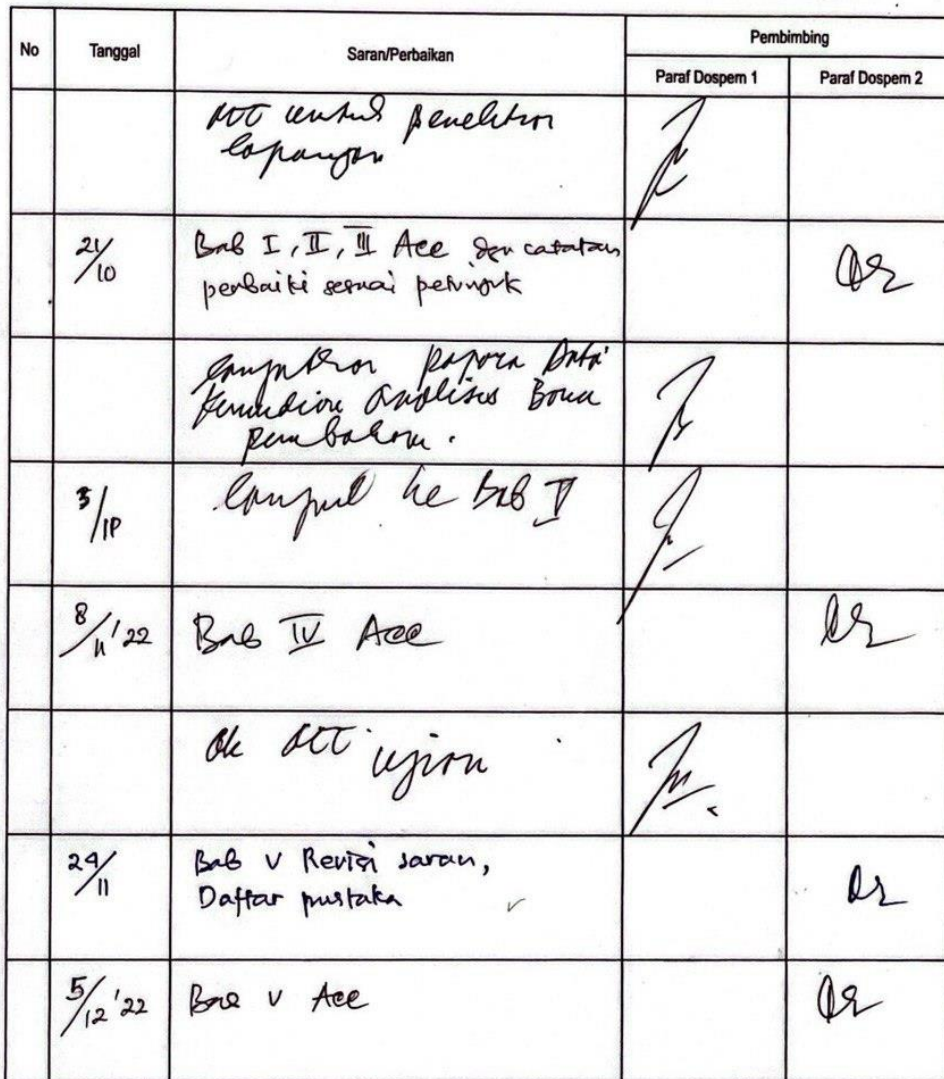 No Tanggal Saran/Perbaikan Pembimbing
Paraf Dospem 1 Paraf Dospem 2
ACC untuk penelition
lapangan
21/10 Bab I, II, III Acc dgn catatan
perbaiki sesuai petunjuk
papora Data
kemudian analisis
pembahasan.
3/ ke Bab V
8/11 '22 Bab IV Acc
Ok ACC ujian
24/11 Bab V Revisi saran,
Daftar pustaka
5/12 '22 Bab V Acc